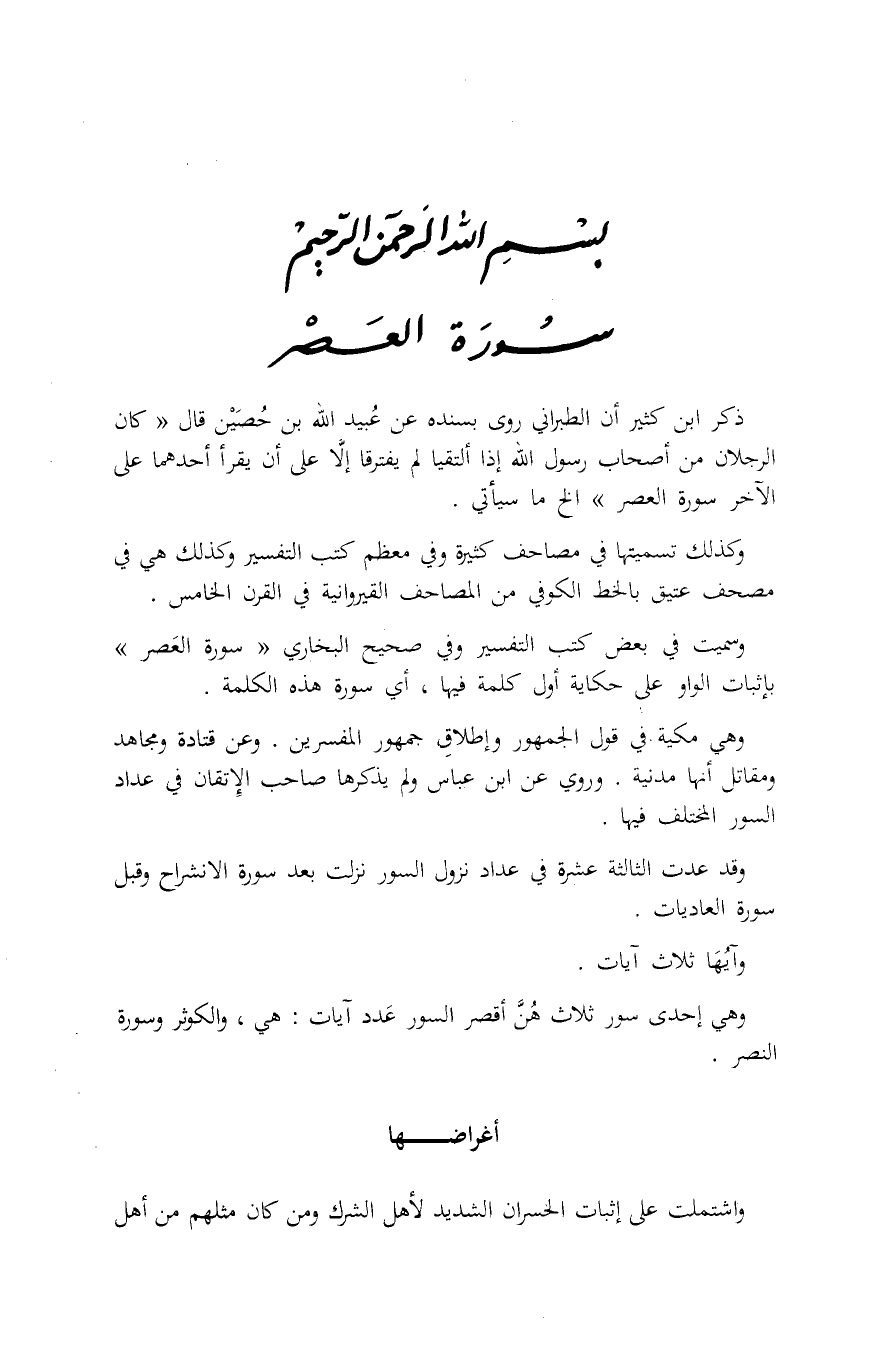 بِسْمِ اللهِ الرَّحْمَنِ الرَّحِيمْ
سُورَة العَصْر
ذكر ابن كثير أن الطبراني روى بسنده عن عُبيد الله بن حُصَيْن قال « كان
الرجلان من أصحاب رسول الله إذا ألتقيا لم يفترقا إلَّا على أن يقرأ أحدهما على
الآخر سورة العصر » الخ ما سيأتي .
وكذلك تسميتها في مصاحف كثيرة وفي معظم كتب التفسير وكذلك هي في
مصحف عتيق بالخط الكوفي من المصاحف القيروانية في القرن الخامس .
وسميت في بعض كتب التفسير وفي صحيح البخاري « سورة العَصر »
بإثبات الواو على حكاية أول كلمة فيها ، أي سورة هذه الكلمة .
وهي مكية في قول الجمهور وإطلاقِ جمهور المفسرين . وعن قتادة ومجاهد
ومقاتل أنها مدنية . وروي عن ابن عباس ولم يذكرها صاحب الإِتقان في عداد
السور المختلف فيها .
وقد عدت الثالثة عشرة في عداد نزول السور نزلت بعد سورة الانشراح وقبل
سورة العاديات .
وآيُهَا ثلاث آيات .
وهي إحدى سور ثلاث هُنَّ أقصر السور عَدد آيات : هي ، والكوثر وسورة
النصر .
أغراضـــها
واشتملت على إثبات الخسران الشديد لأهل الشرك ومن كان مثلهم من أهل